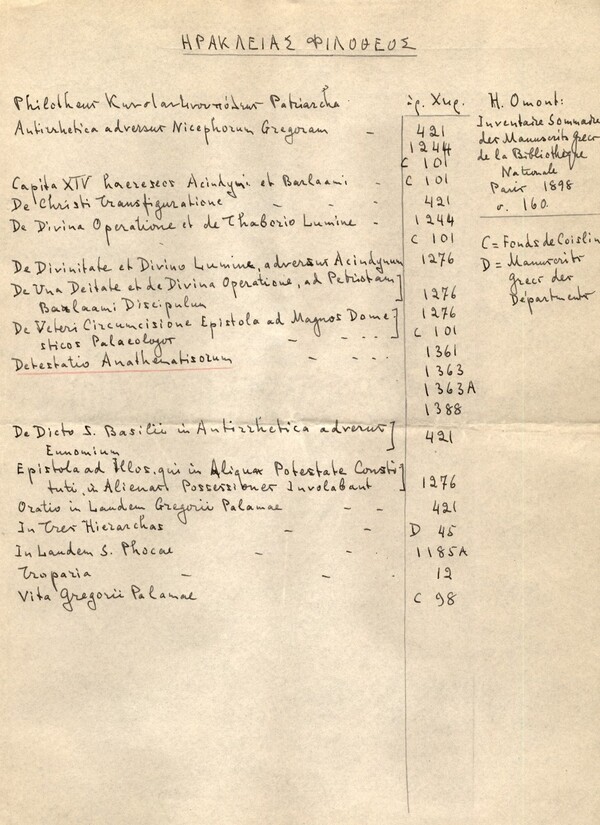 ΗΡΑΚΛΕΙΑΣ ΦΙΛΟΘΕΟΣ
Philotheus Κωνσταντινουπόλεως Patriarcha
ἀρ. Χειρ.
Antirrhetica adversus Nicephorum Gregoram - 421
1244
C 101
Capita XIV haereseos Acindyni et Barlaami - C 101
De Christi Transfiguratione - - - 421
De Divina Operatione et de Thaborio Lumine - 1244
C 101
De Divinitate et Divino Lumine, adversus Acindynum 1276
De Una Deitate et de Divina Operatione, ad Petriotam]
Barlaami Discipulum 1276
De Veteri Circumcisione Epistola ad Magnos Dome] 1276
sticos Palaeologos - - - - C 101
Detestatio Anathematisorum - - - - 1361
1363
1363A
1388
De Dicto S. Basilii in Antirrhetica adversus]
Eunomium 421
Epistola ad Illos, qui in Aliqua Potestate Consti]
tuti, in Alienas Possessiones Involabant 1276
Oratio in Laudem Gregorii Palamae - - 421
In Tres Hierarchas - - D 45
In Laudem S. Phocae - - - 1185A
Troparia - - 12
Vita Gregorii Palamae C 98
H. Omont:
Inventaire Sommaire
des Manuscrits Grecs
de la Bibliothèque
Nationale
Paris 1898
σ. 160.
C = Fonds de Coislin
D = Manuscrits
grecs des
Départements